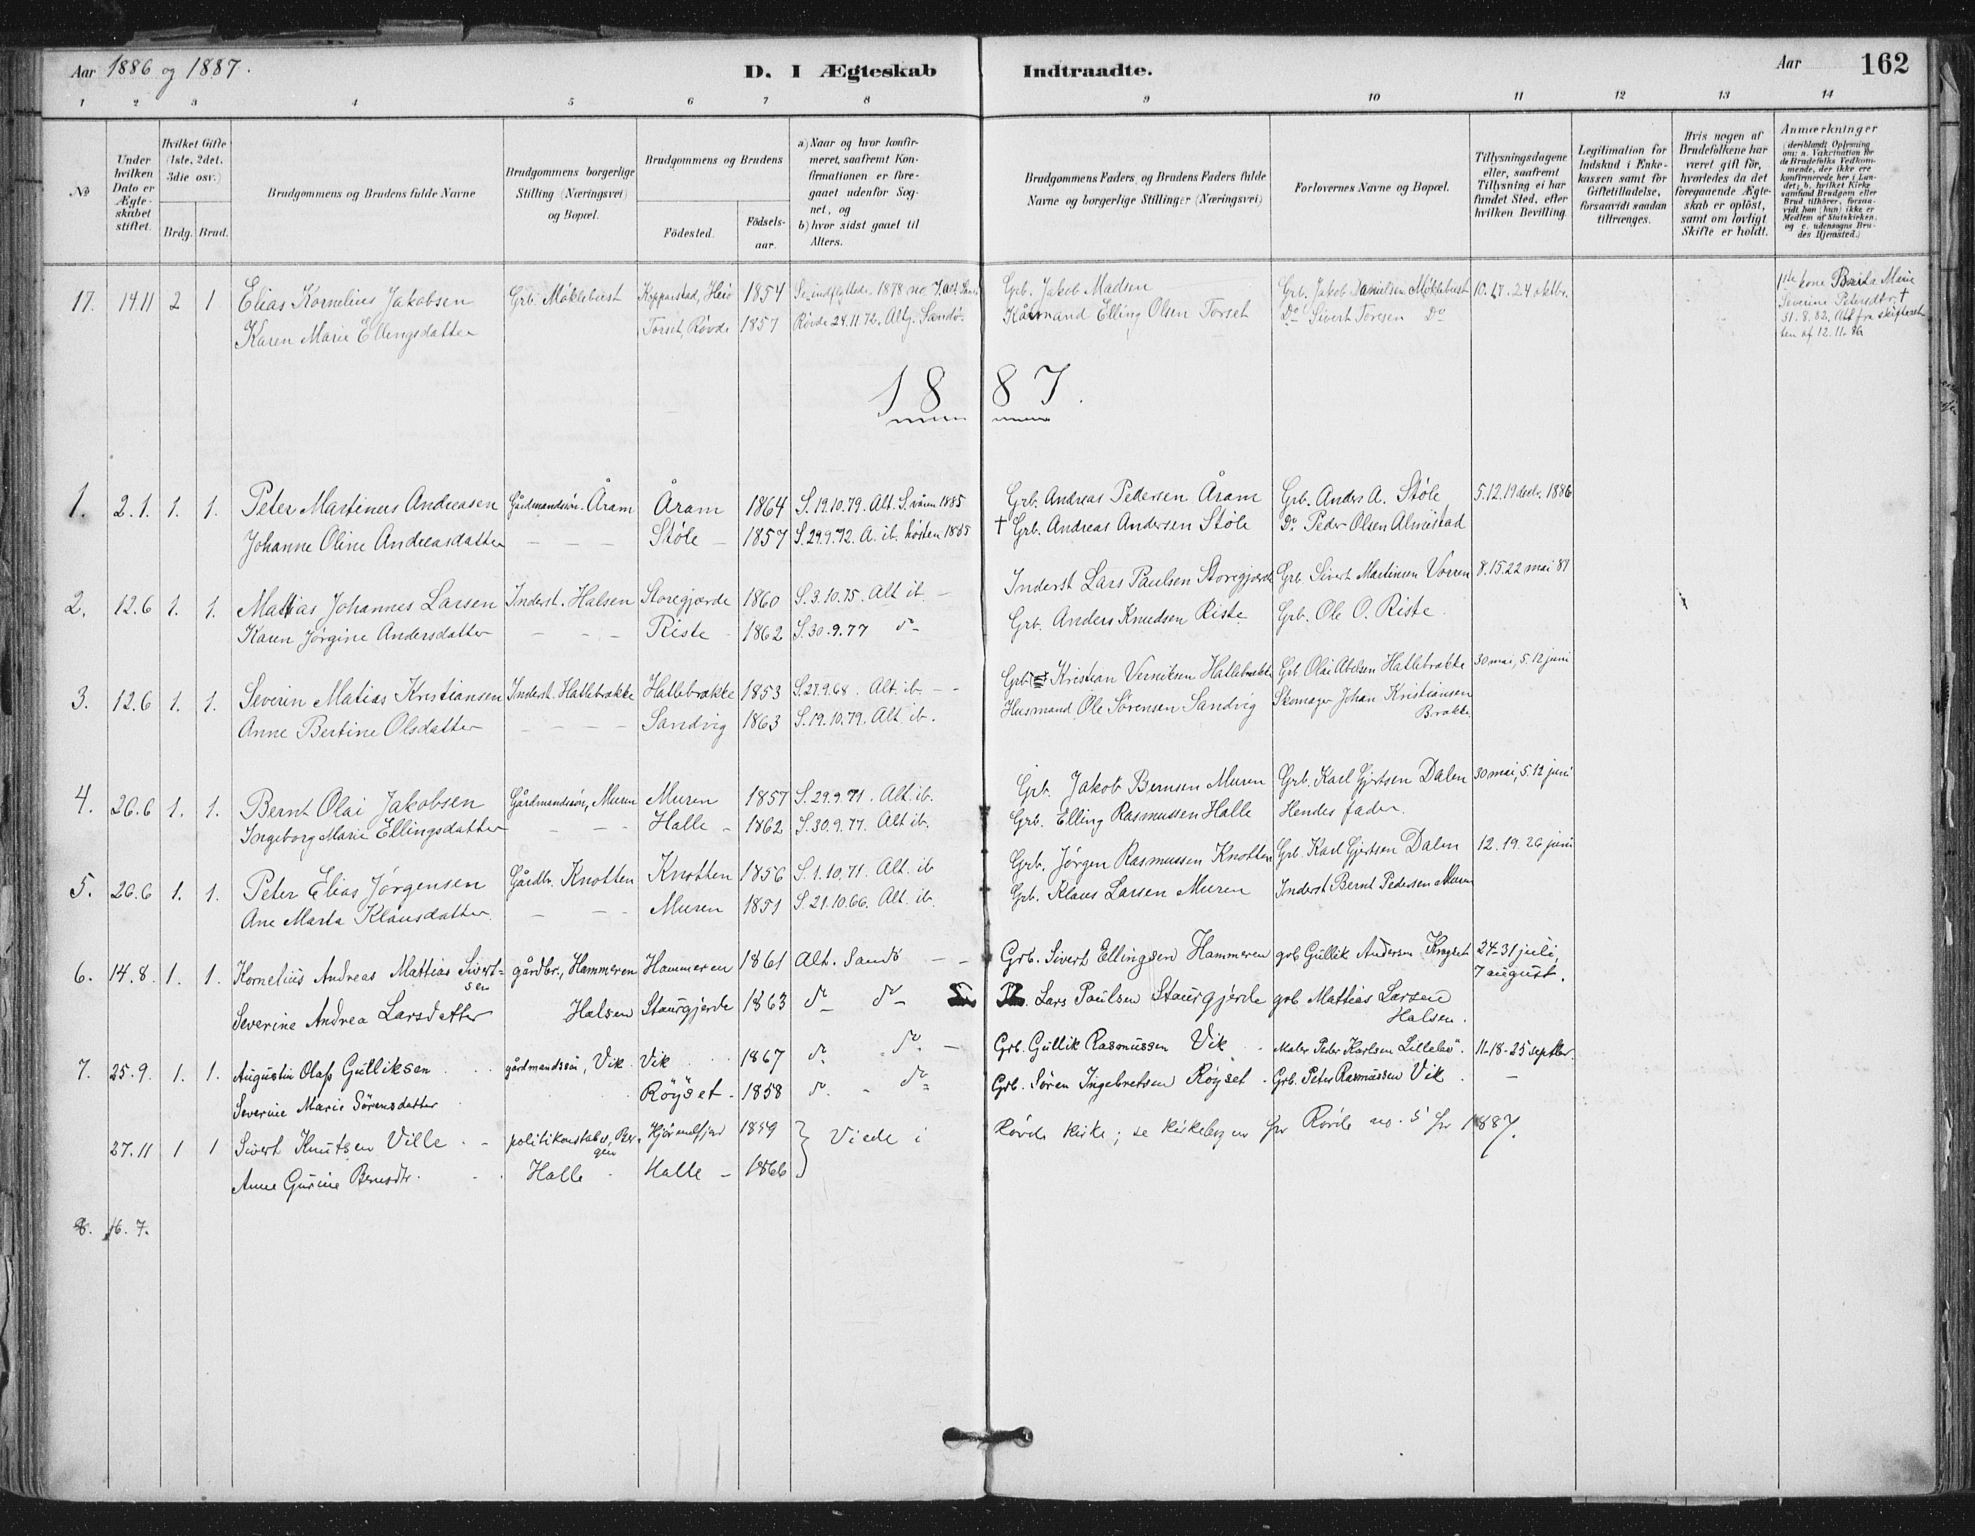 Aar 1886 og 1887. D. I Ægteskab Indtraadte. Aar 162
1 2 3 4 5 6 7 8 9 10 11 12 13 14
No
Under hvilken Dato er Ægteskabet stiftet.
Hvilket Gifte (1ste, 2det, 3die osv.)
Brdg. Brud.
Brudgommens og Brudens fulde Navne
Brudgommens borgerlige Stilling (Næringsvei) og Bopæl.
Brudgommens og Brudens
Födested. Födsels-aar.
a) Naar og hvor konfirmeret, saafremt Konfirmationen er foregaaet udenför Sognet, og
b) hvor sidst gaaet til Alters.
Brudgommens Faders, og Brudens Faders fulde Navne og borgerlige Stillinger (Næringsvei)
Forlovernes Navne og Bopæl.
Tillysningsdagene eller, saafremt Tillysning ei har fundet Sted, efter hvilken Bevilling
Legitimation for Indskud i Enkekassen samt for Giftetilladelse, forsaavidt saadan tiltrænges.
Hvis nogen af Brudefolkene har været gift för, hvorledes da det foregaaende Ægteskab er oplöst, samt om lovligt Skifte er holdt.
Anmærkninger (deriblandt Oplysning om: a. Vakcination for de Brudefolks Vedkommende, der ikke ere konfirmerede her i Landet; b. hvilket Kirkesamfund Brudgom eller Brud tilhörer, forsaavidt han (hun) ikke er Medlem af Statskirken, og c. udensogns Brudes Hjemsted.)
17. 14.11 2 1 Elias Kornelius Jakobsen Grb. Møklebust Kopparstad, Herö 1854 Se indflyttede 1878 no 7. Alt. Sandö Grb. Jakob Madsen Grb. Jakob Danielsen Møklebust 10. 17. 24 oktbr. 1ste kone Berta Marie
Karen Marie Ellingsdatter Torset, Røvde 1857 Røvde 24.11.72. Altg. Sandö. Elling Olsen Torset Do Sivert Toresen Do Severine Petersdtr. †
31.8.82. Att fra skifteret
ten af 12.11.86
1887.
1. 2.1. 1. 1. Peter Martinus Andreasen Gårdmandssön. Åram Åram 1864 S. 19.10.79. Alt. S. våren 1885 Grb. Andreas Pedersen Åram Grb. Anders A. Støle 5.12.19 decbr. 1886
Johanne Oline Andreasdatter – – – Støle – 1857 S. 29.9.72. A. ib. hösten 1885 † Grb. Andreas Andersen Støle Do Peder Olsen Almestad
2. 12.6 1. 1. Mattias Johannes Larsen Inderst. Halsen Storegjærde 1860 S. 3.10.75. Alt ib – Inderst Lars Paulsen Storegjærde Grb. Sivert Martinsen Vorren 8.15.22 mai 87
Karen Jørgine Andersdatter – – – Riste 1862 S. 30.9.77 do Grb. Anders Knudsen Riste Grb. Ole O. Riste.
3. 12.6 1. 1. Severin Matias Kristiansen Inderst. Hatlebrække Hatlebrække 1853 S. 27.9.68. Alt. ib. – – Grb. Kristian Verniksen Hatlebrække Grb Olai Abelsen Hatlebrække 30 mai, 5.12 juni
Anne Bertine Olsdatter – – – – Sandvig 1863 S. 19.10.79. Alt ib. Husmand Ole Sörensen Sandvig Skomager Johan Kristiansen
Brække
4. 26.6 1. 1. Bernt Olai Jakobsen Gårdmandssön, Muren Muren 1857 S. 29.9.71. Alt. ib. Grb. Jakob Berntsen Muren Grb. Karl Gjertsen Dalen 30 mai, 5.12 juni
Ingeborg Marie Ellingsdatter – – – Halle – 1862 S. 30.9.77. Alt ib. Grb. Elling Rasmussen Halle Hendes fader.
5. 26.6 1. 1. Peter Elias Jørgensen Gårdbr. Knotten Knotten 1856 S. 1.10.71. Alt. ib Grb. Jørgen Rasmussen Knotten Grb. Karl Gjertsen Dalen 12. 19. 26 juni
Ane Marta Klausdatter. – – – Muren 1851 S. 21.10.66. Alt. ib. Grb. Klaus Larsen Muren Inderst Bernt Pedersen Muren
6. 14.8. 1. 1. Kornelius Andreas Mattias Sivert- gårdbr., Hammeren Hammeren 1861 Alt. Sandö – – Grb. Sivert Ellingsen Hammeren grb Gullik Andersen 24–31 juli,
sen 7 august.
Severine Andrea Larsdatter Halsen Staurgjerde 1863 do do – Lars Paulsen Staurgjerde grb Mattias Larsen
Halsen.
7. 25.9. 1. 1. Augustin Olaf Gulliksen gårdmandssön, Vik Vik 1867 do. do. – Grb. Gullik Rasmussen Vik Maler Peder Karlsen Lillebö. 11–18–25 septbr.
Severine Marie Sörensdatter Röyset – 1858 do – do Grb. Sören Ingebretsen Röyset Grb. Peter Rasmussen Vik –
27.11 1 1 Sivert Knutsen Ville politikonstabel, Ber- Hjörundfjord 1859 Viede i Røvde kirke; se kirkebogen for Røvde no. 5 for 1887.
gen
Anne Gurine Berntdtr. Halle Halle – 1866
8. 16.7.